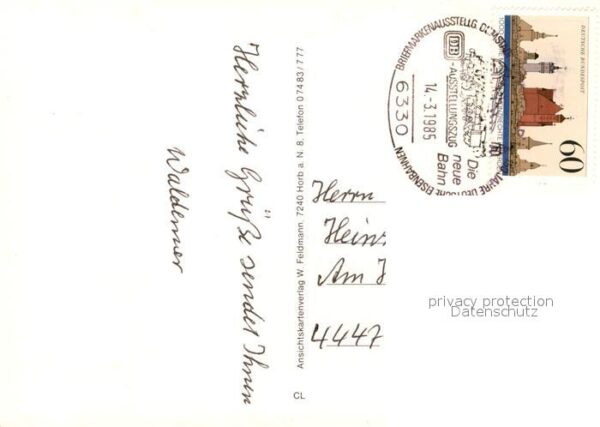 Herzliche Grüße sendet Ihnen
Waldemar
Ansichtskartenverlag W. Feldmann, 7240 Horb a. N. 8, Telefon 07483/777
CL
Herrn
Am
4447
BRIEFMARKENAUSSTELLG.
DB
-AUSSTELLUNGSZUG
Die
neue
Bahn
14.-3.1985
6330
JAHRE DEUTSCHE EISENBAHNEN
DEUTSCHE BUNDESPOST
60
privacy protection
Datenschutz